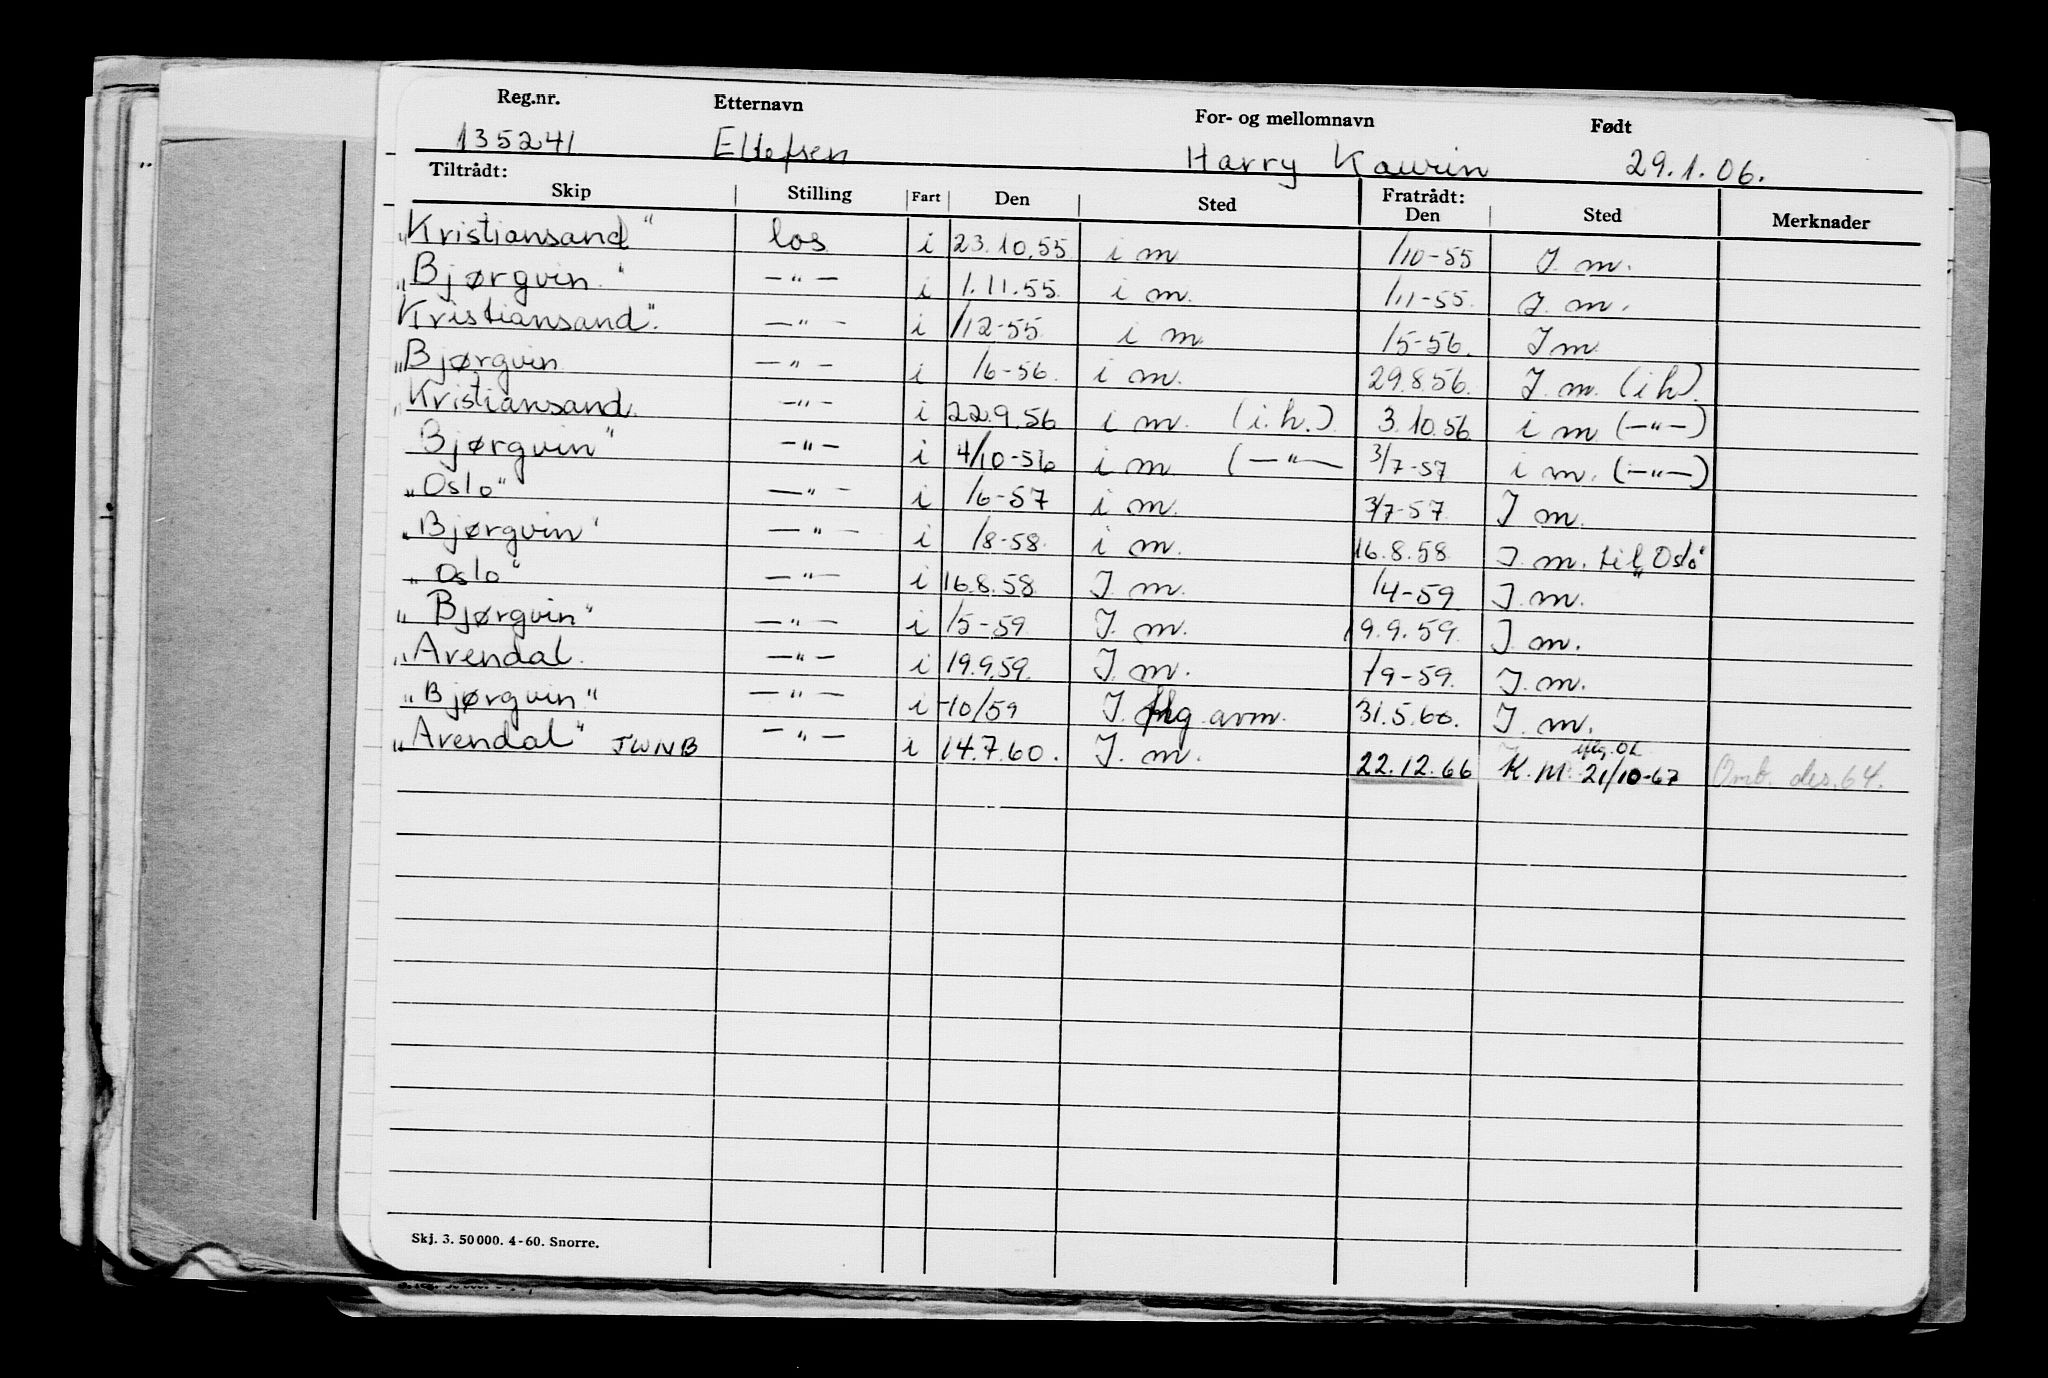 Reg.nr. Etternavn For- og mellomnavn Født
135241 Ellefsen Harry Kaurin 29.1.06.
Tiltrådt: Fratrådt:
Skip Stilling Fart Den Sted Den Sted Merknader
"Kristiansand" los i 23.10.55 i m /10-55 I. m.
"Bjørgvin" —"— i 1.11.55. i m. /11-55. I. m.
Kristiansand". —"— i /12-55 i m /5-56. I m.
"Bjørgvin —"— i /6-56. i m. 29.8.56. I. m. (i h).
"Kristiansand. —"— i 22.9.56 i m. (i.h.). 3.10.56. i m (—"—)
Bjørgvin" —"— i 4/10-56 i m (—"— 3/7-57 i m. (—"—)
"Oslo" —"— i /6-57 i m. 3/7-57. I m.
"Bjørgvin" —"— i /8-58. i m. 16.8.58. I. m. til "Oslo"
"Oslo" —"— i 16.8.58 I. m. /4-59 I. m.
"Bjørgvin" —"— i /5-59. I. m. 19.9.59. I. m.
"Arendal. —"— i 19.9.59. I. m. /9-59. I. m.
"Bjørgvin" —"— i -10/59 I. avm. 31.5.60. I. m.
"Arendal" JWNB —"— i 14.7.60. I. m. 22.12.66 K. M. iflg. OL 21/10-67 Omb. des. 64.
Skj. 3. 50 000. 4-60. Snorre.